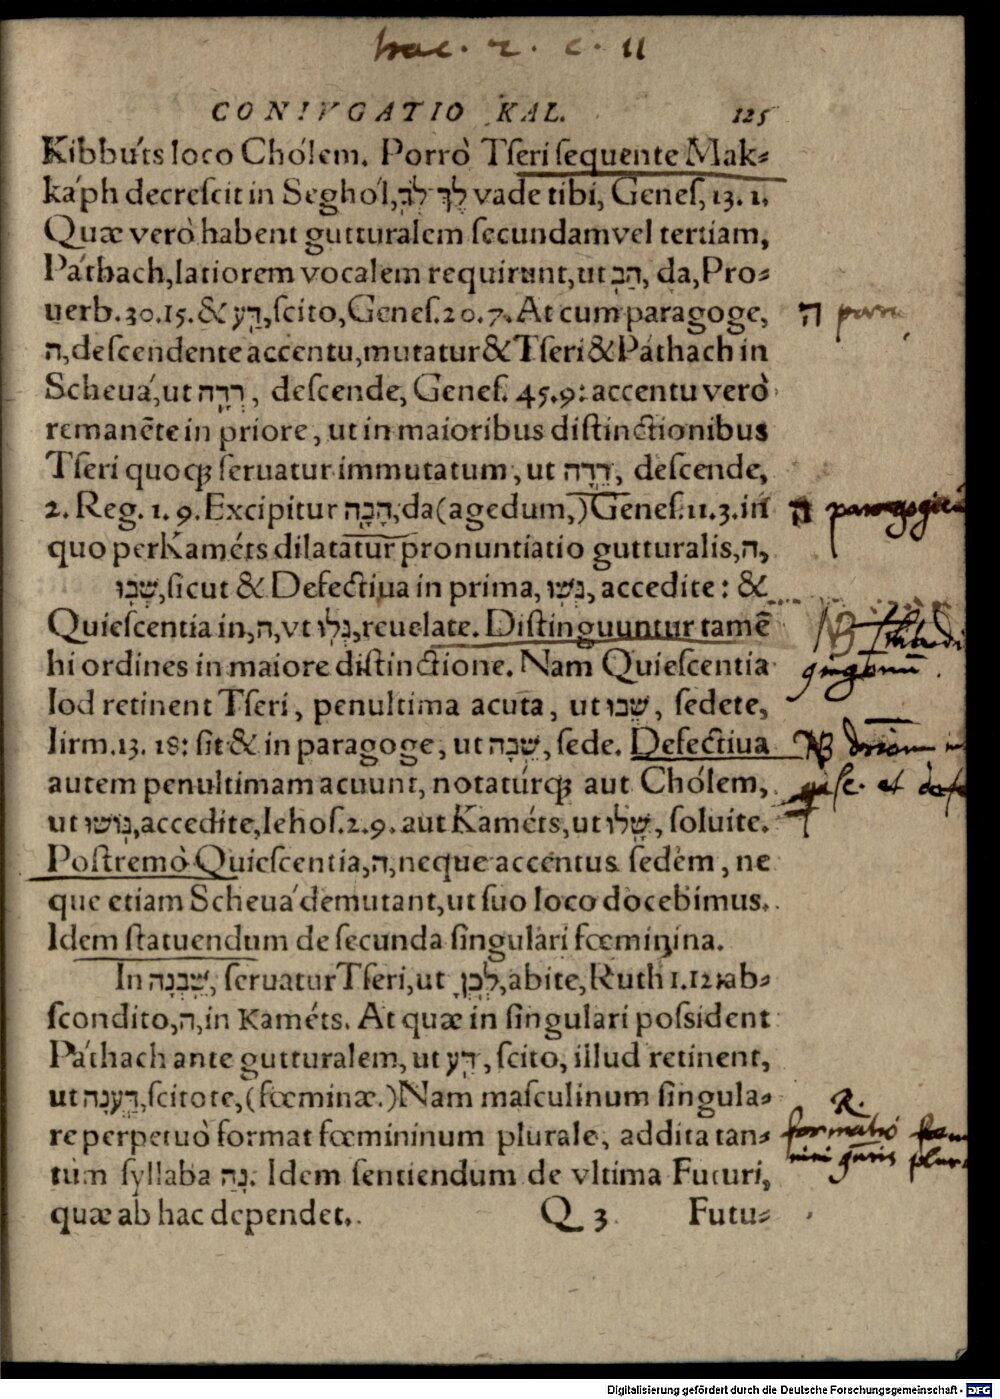 hac. 2. c. 11
CONIVGATIO KAL. 125
Kibbúts loco Chólem. Porrò Tſeri ſequente Mak⸗
káph decreſcit in Seghól, לֶךְ־לְךָ vade tibi, Geneſ, 13. 1.
Quæ verò habent gutturalem ſecundam vel tertiam,
Páthach, latiorem vocalem requirunt, ut הַב, da, Pro⸗
uerb. 30. 15. & דַע, ſcito, Geneſ. 20. 7. At cum paragoge,
ה, deſcendente accentu, mutatur & Tſeri & Páthach in
Scheuá, ut רְדָה, deſcende, Geneſ. 45. 9: accentu verò
remanẽte in priore, ut in maioribus diſtinctionibus
Tſeri quoqꝫ ſeruatur immutatum, ut רֵדָה, deſcende,
2. Reg. 1. 9. Excipitur הָבָה, da (agedum,) Geneſ. 11. 3. in
quo per Kaméts dilatatur pronuntiatio gutturalis, ה,
שְׁבוּ, ſicut & Defectiua in prima, גְּשׁוּ, accedite: &
Quieſcentia in, ה, vt גְּלוּ, reuelate. Diſtinguuntur tamẽ
hi ordines in maiore diſtinctione. Nam Quieſcentia
Iod retinent Tſeri, penultima acuta, ut שֵׁבוּ, ſedete,
Iirm. 13. 18: ſit & in paragoge, ut שֵׁבָה, ſede. Defectiua
autem penultimam acuunt, notatúrqꝫ aut Chólem,
ut גֹּושׁוּ, accedite, Iehoſ. 2. 9. aut Kaméts, ut שָׁלוּ, ſoluite.
Poſtremò Quieſcentia, ה, neque accentus ſedem, ne
que etiam Scheuá demutant, ut ſuo loco docebimus.
Idem ſtatuendum de ſecunda ſingulari fœminina.
In שֵׁבְנָה, ſeruatur Tſeri, ut לֵכְןָ, abite, Ruth 1. 12: ab⸗
ſcondito, ה, in Kaméts. At quæ in ſingulari poſsident
Páthach ante gutturalem, ut דַע, ſcito, illud retinent,
ut דַעְנָה, ſcitote, (fœminæ.) Nam maſculinum ſingula⸗
re perpetuò format fœmininum plurale, addita tan⸗
tùm ſyllaba נָה. Idem ſentiendum de vltima Futuri,
quæ ab hac dependet.
Q 3 Futu⸗
ה para
ה paragogicũ
NB
NB
et defe
R.
formatio fœm
nini plur
Digitalisierung gefördert durch die Deutsche Forschungsgemeinschaft - DFG